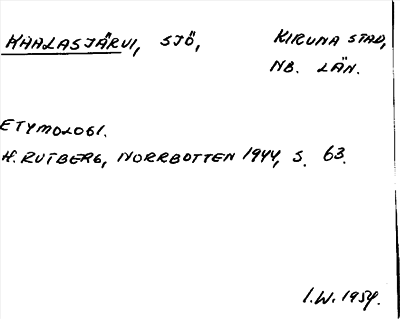 KAALASJÄRVI, SJÖ, KIRUNA STAD,
NB. LÄN.
ETYMOLOGI.
H. RUTBERG, NORRBOTTEN 1944, S. 63.
I.W. 1954.